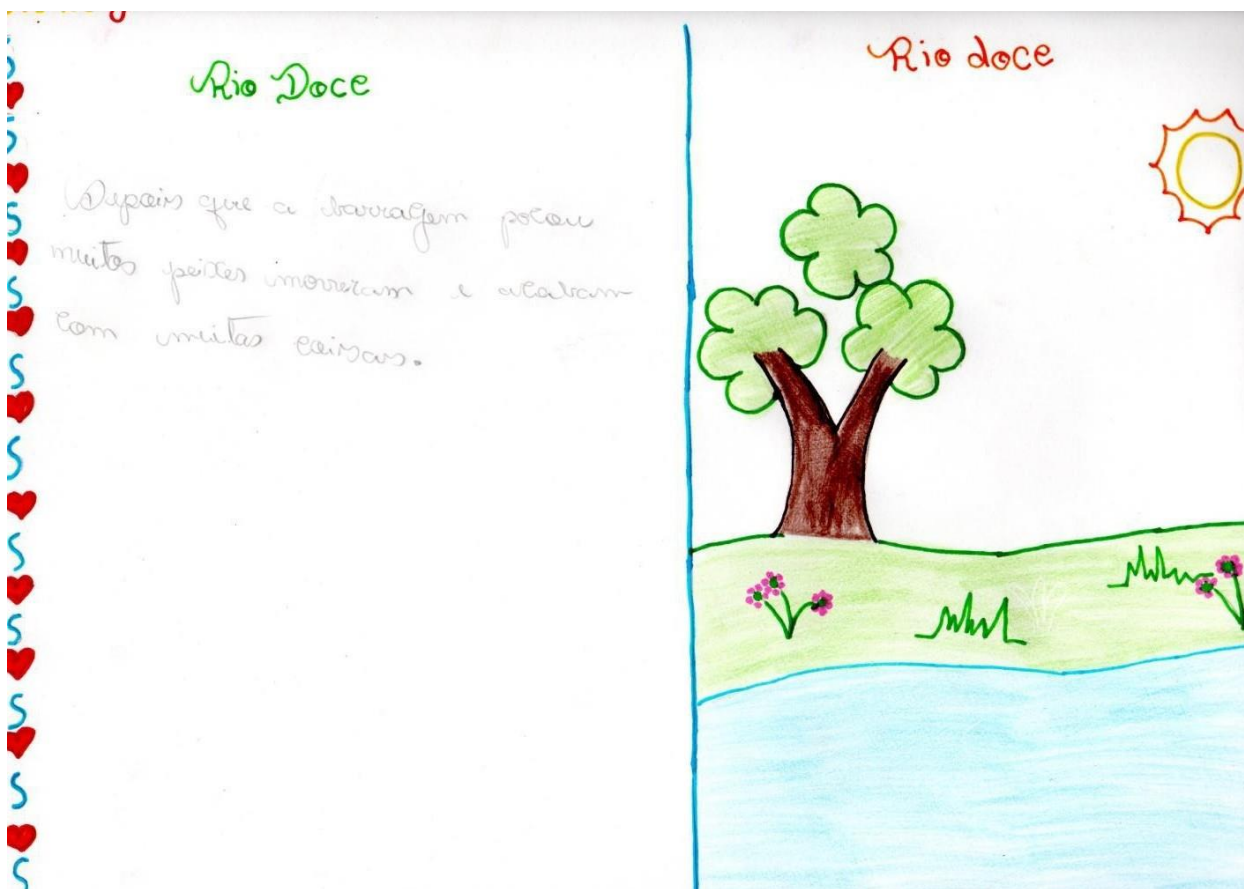 Rio Doce
Depois que a barragem
muitos peixes morreram e acabam
com muitas coisas.
Rio doce